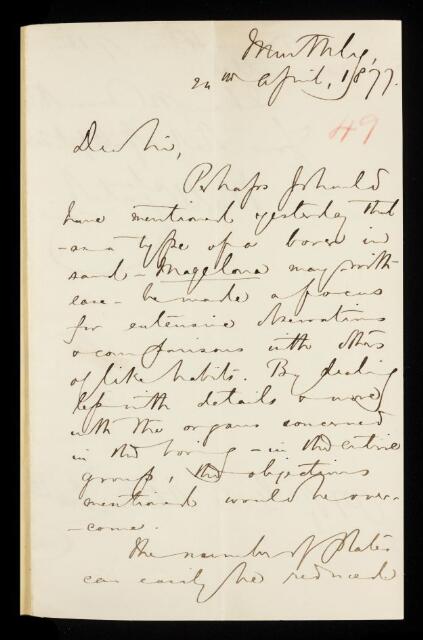 Murthly,
24th April, 1877.
49
Dear Sir,
Perhaps I should
have mentioned yesterday that
- as a type of a borer in
sand - Magelona may with
ease - be made a focus
for extensive observations
& comparisons with others
of like habits. By dealing
less with details & more
with the organs concerned
in the boring - in the entire
group, the objections
mentioned would be over-
-come.
The number of Plates
can easily be reduced